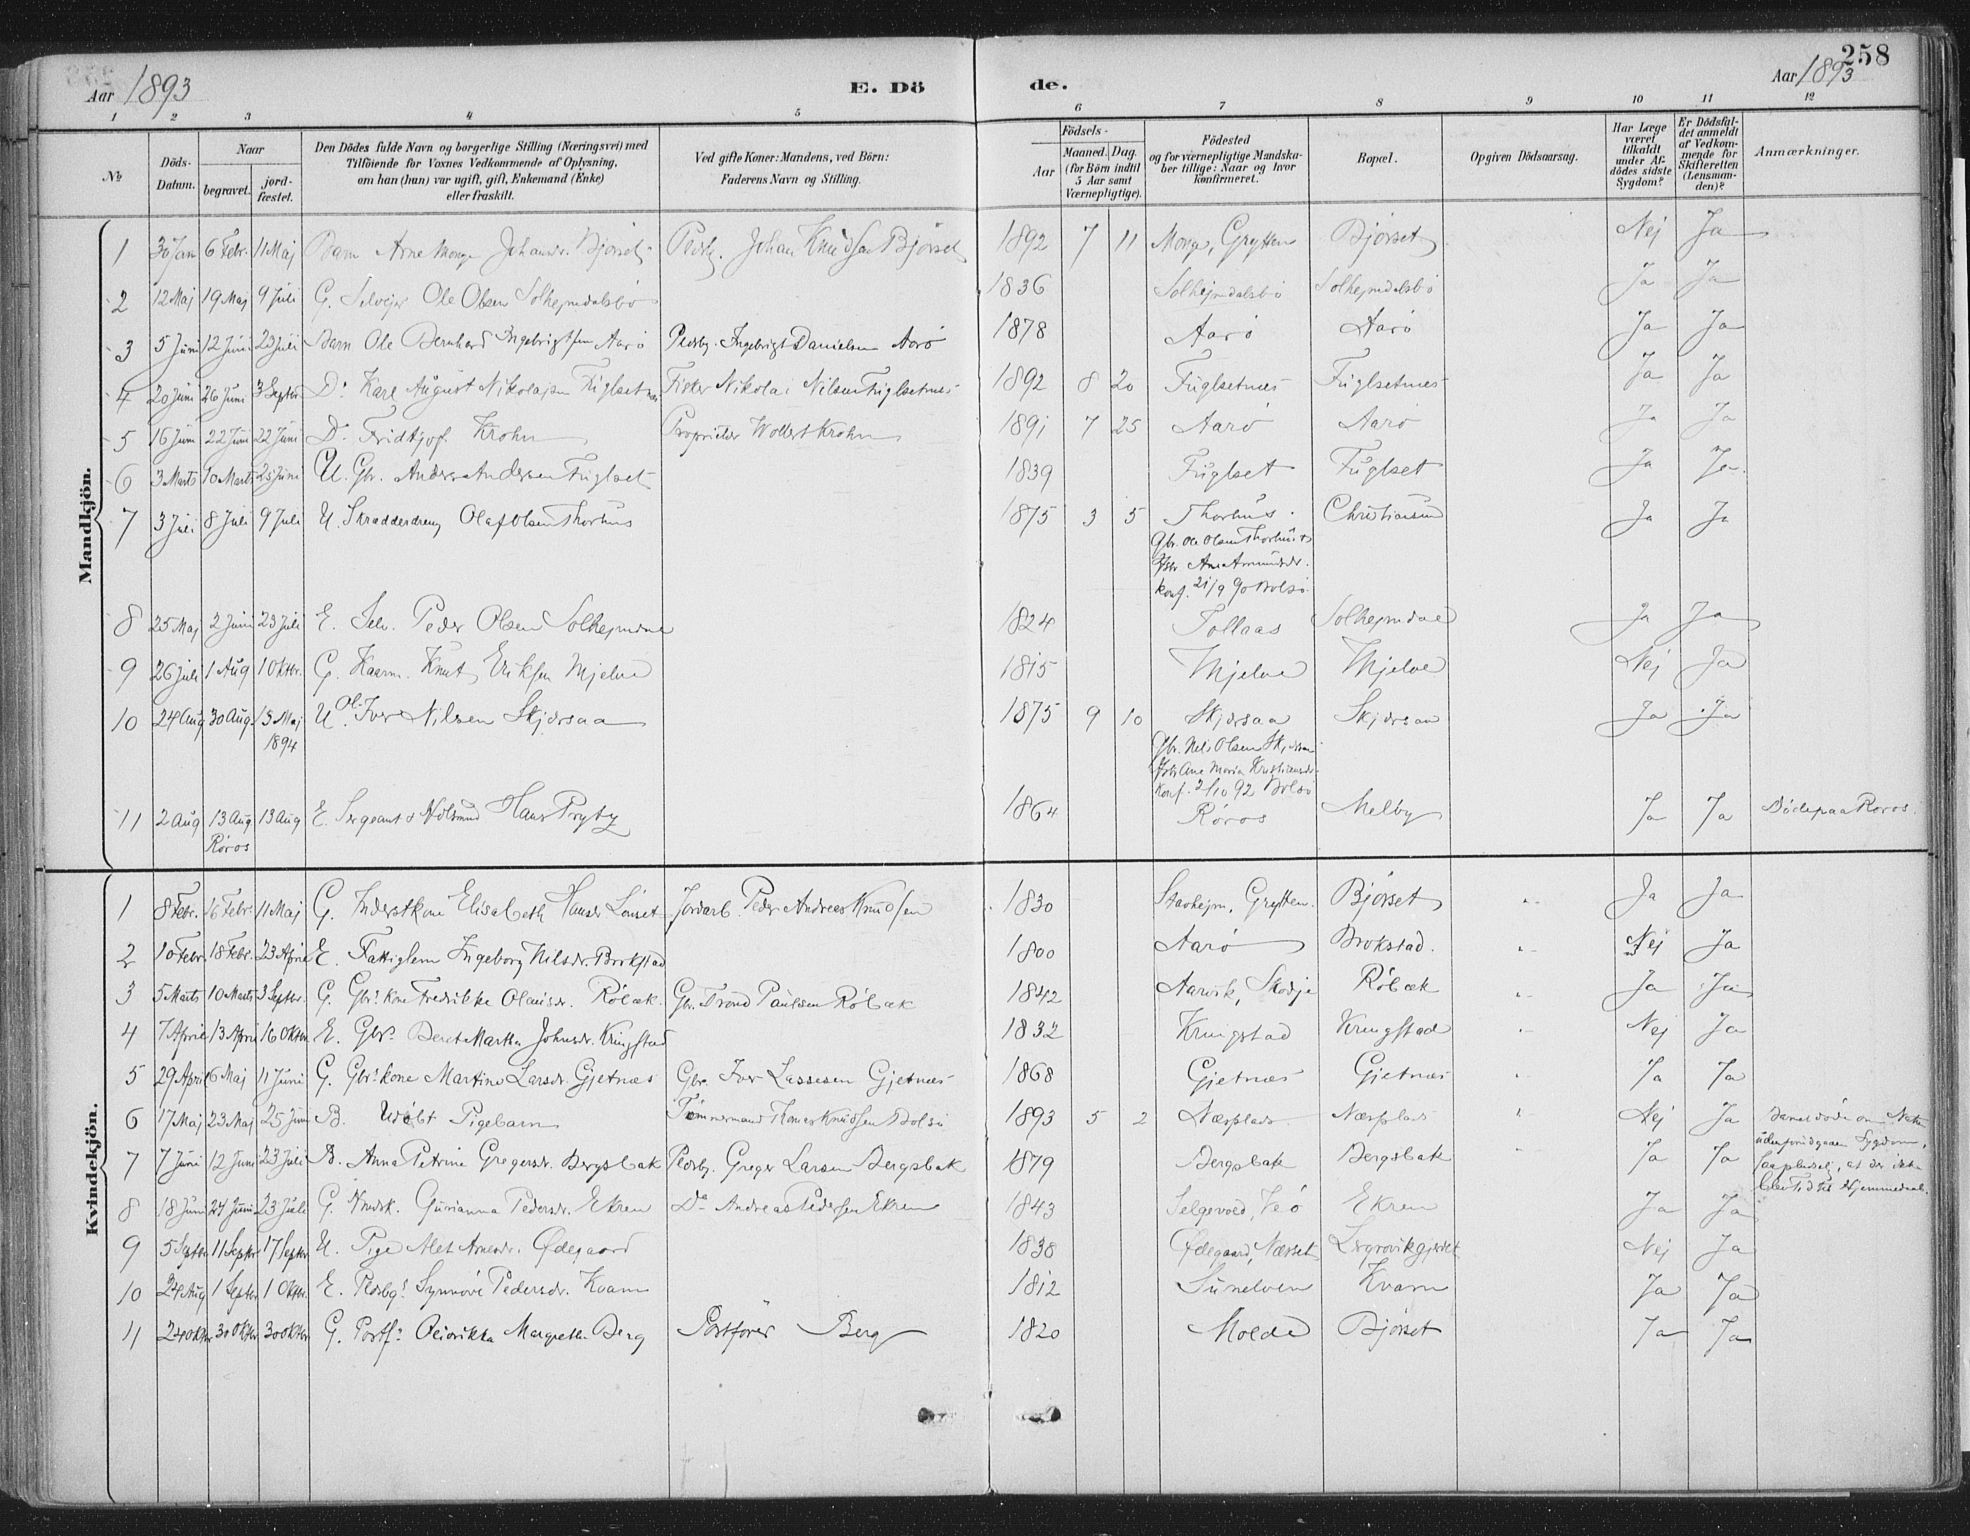 258
Aar 1893 E. Dö de. Aar 1893
1 2 3 4 5 6 7 8 9 10 11 12
№ Döds-Datum. Naar begravet. jord-fæstet. Den Dödes fulde Navn og borgerlige Stilling (Næringsvei) med Tilföiende for Voxnes Vedkommende af Oplysning, om han (hun) var ugift, gift, Enkemand (Enke) eller fraskilt. Ved gifte Koner: Mandens, ved Börn: Faderens Navn og Stilling. Födsels- Aar Maaned. Dag. (for Börn indtil 5 Aar samt Værnepligtige). Födested og for værnepligtige Mandskaber tillige: Naar og hvor konfirmeret. Bopæl. Opgiven Dödsaarsag. Har Læge været tilkaldt under Afdödes sidste Sygdom? Er Dödsfaldet anmeldt af Vedkommende for Skifteretten (Lensmanden)? Anmærkninger.
Mandkjön.
1 30 Jan 6 Febr. 11 Maj Barn Arne Monge Johansdr. Bjørset Pladsbg. Johan Knudsen Bjørset 1892 7 11 Monge, Grytten Bjørset Nej Ja
2 12 Maj 19 Maj 9 Juli G. Selvejer Ole Olsen Solhejmdalsbø 1836 Solhejmdalsbø Solhejmdalsbø Ja Ja
3 5 Juni 12 Juni 23 Juli Barn Ole Bernhard Ingebrigtsen Aarø Pladsbg. Ingebrigt Danielsen Aarø 1878 Aarø Aarø Ja Ja
4 20 Juni 26 Juni 3 Septbr. Do Karl August Nikolajsen Fuglsetnes Fisker Nikolai Nilsen Fuglsetnes 1892 8 20 Fuglsetnes Fuglsetnes Ja Ja
5 16 Juni 22 Juni 22 Juni Do Fridtjof Krohn Proprietær Wollert Krohn 1891 7 25 Aarø Aarø Ja Ja
6 3 Marts 10 Marts 25 Juni U. Gbr. Anders Andersen Fuglset 1839 Fuglset Fuglset Ja Ja
7 3 Juli 8 Juli 9 Juli U. Skrædderdreng Olaf Olsen Thorhus 1875 3 5 Thorhus Christiansund Ja Ja
Gbr. Ole Olsen Thorhus +
Hstr Ane Amundsdr.
konf. 21/9 90 Bolsø
8 25 Maj 2 Juni 23 Juli E. Selv. Peder Olsen Solhejmdal 1824 Tollaas Solhejmdal Ja Ja
9 26 Juli 1 Aug 1 Oktbr. G. Kaarm. Knut Eriksen Mjelve 1815 Mjelve Mjelve Nej Ja
10 24 Aug 30 Aug. 13 Maj 1894 U. Ol. Iver Nilsen Skjørsaa 1875 9 10 Skjørsaa Skjørsaa Ja Ja
Gbr. Nils Olsen Skjørsaa
Hstr Ane Maria Kristiansdr.
Konf. 2/10 92 Bolsø
11 2 Aug 13 Aug Røros 13 Aug E. Sergeant & Hans Pryty 1864 Røros Melby Ja Ja Døde paa Røros.
Kvindekjön.
1 8 Febr. 16 Febr. 11 Maj G. Inderstkone Elisabeth Hansdr Lønset Jordarb. Peder Andreas Knudsen 1830 Stavhejm, Grytten. Bjørset Ja Ja
2 10 Febr. 18 Febr. 23 April E. Fattiglem Ingeborg Nilsdr. Brokstad 1800 Aarø Brokstad. Nej Ja
3 5 Marts 10 Marts 3 Septbr. G. Gbr.s kone Fredrikke Olausdr. Røbæk. Gbr. Trond Paulsen Røbæk 1842 Aarvik, Skodje Røbæk Ja Ja
4 7 April 13 April 16 Oktbr. E. Gbr.s Beret Martha Johnsdr. Kringstad 1832 Kringstad Kringstad Nej Ja
5 29 April 6 Maj 11 Juni G. Gbr.s kone Martine Larsdr. Gjetnæs Gbr. Iver Lassesen Gjetnæs 1868 Gjetnæs Gjetnæs Ja Ja
6 17 Maj 23 Maj 25 Juni B. Udøbt Pigebarn Tømmermand Thomas Knudsen Bolsø 1893 5 2 Næsplads Næsplads Nej Ja Barnet døde om Natten uden forudgaaen Sygdom, saa pludselig, at der ikke blev Tid til Hjemmedaab.
7 7 Juni 12 Juni 23 Juli B. Anna Petrine Gregersdr. Bergsbak Pladsbg. Greger Larsen Bergsbak 1879 Bergsbak Bergsbak Ja Ja
8 18 Juni 24 Juni 23 Juli G. Gurianna Pedersdr. Ekren Do Andreas Pedersen Ekren 1843 Selgevold, Veø Ekren Ja Ja
9 5 Septbr. 11 Septbr 17 Septbr. U. Pige Alet Arnesdr. Ødegaard 1838 Ødegaard, Næsset Nej Ja
10 24 Aug 1 Septbr 1 Oktbr. E. Pladsbg.s Synnøve Pedersdr. Kvam 1812 Sunelven Kvam Ja Ja
11 24 Oktbr 30 Oktbr 30 Oktbr. G. Postf.s Margrethe Berg Postfører Berg 1820 Molde Bjørset Ja Ja